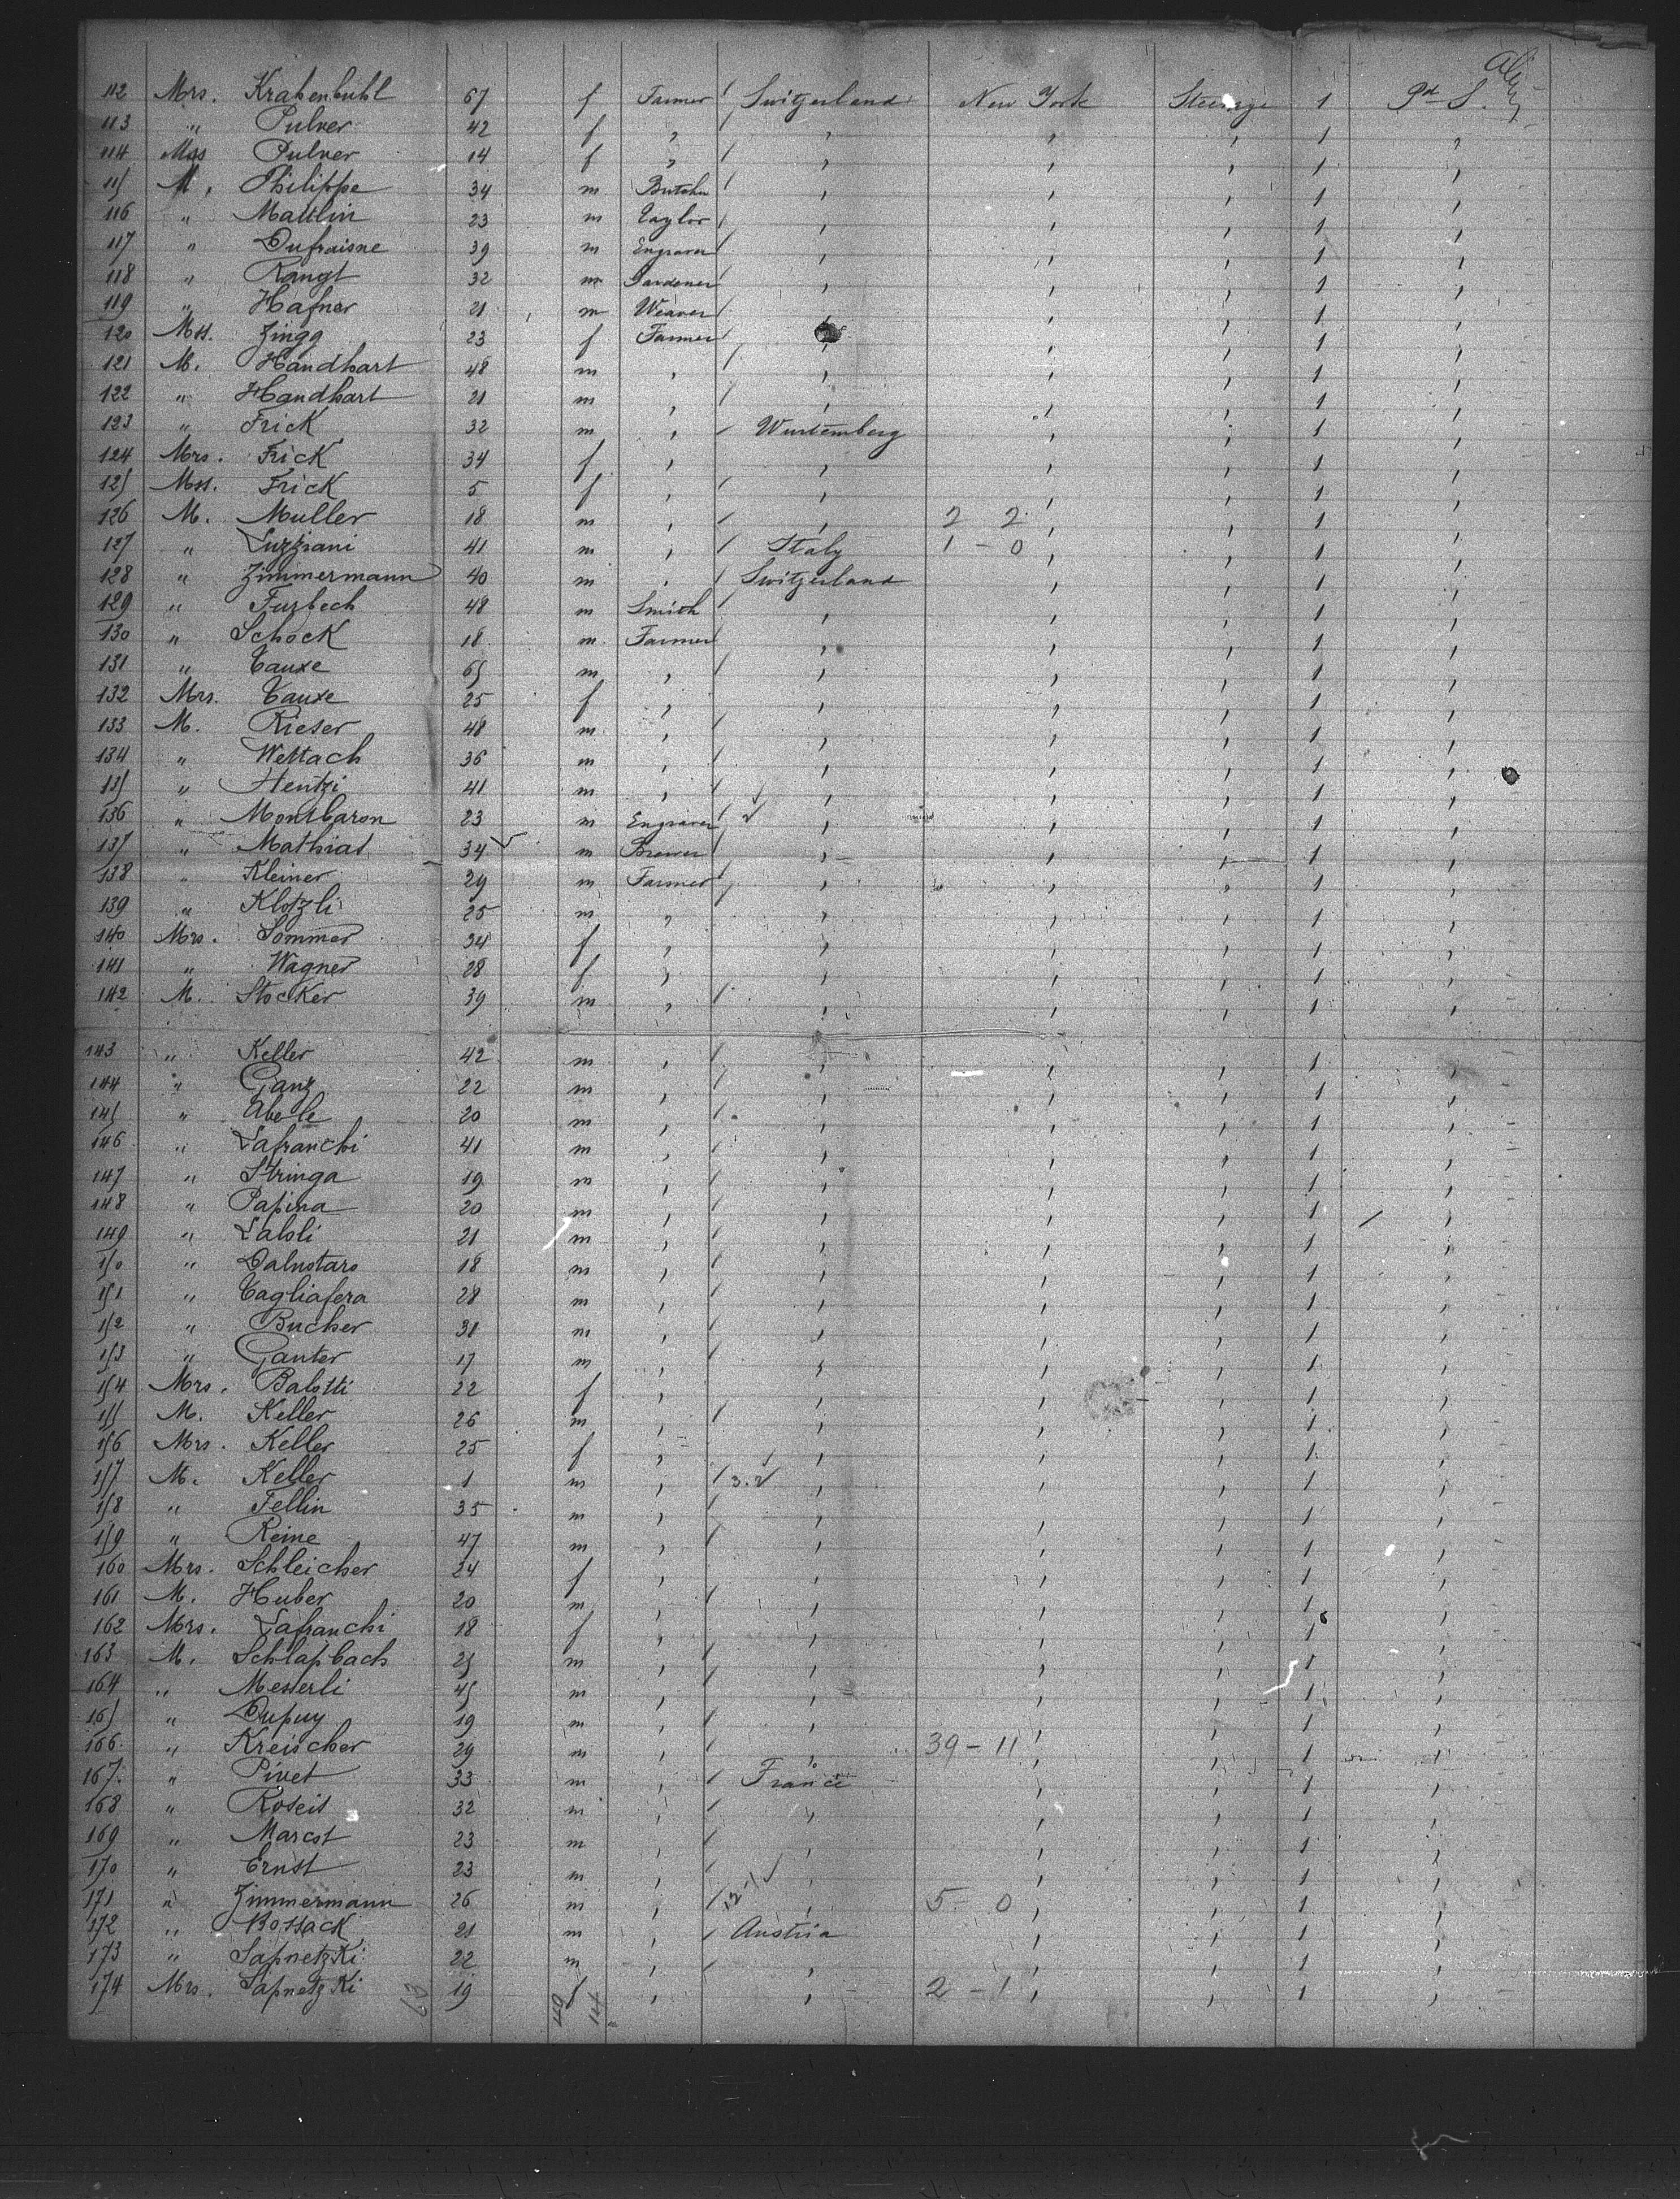 112 Mrs. Krahenbuhl 67 f Farmer Switzerland New York Steerage 1 Pd S.
113 " Pulver 42 f " " " " 1 "
114 Mss Pulver 14 f " " " " 1 "
115 M. Philippe 34 m Butcher " " " 1 "
116 " Mattlin 23 m Taylor " " " 1 "
117 " Dufraisne 39 m Engraver " " " 1 "
118 " Rangt 32 m Gardener " " " 1 "
119 " Hafner 21 m Weaver " " " 1 "
120 Mss. Zingg 23 f Farmer " " " 1 "
121 M. Handhart 48 m " " " " 1 "
122 " Handhart 21 m " " " " 1 "
123 " Frick 32 m " Wurtemberg " " 1 "
124 Mrs. Frick 34 f " " " " 1 "
125 Mss. Frick 5 f " " " " 1 "
126 M. Muller 18 m " " 2 2 " " 1 "
127 " Luzziani 41 m " Italy 1 - 0 " " 1 "
128 " Zimmermann 40 m " Switzerland " " 1 "
129 " Furbech 48 m Smith " " " 1 "
130 " Schock 18 m Farmer " " " 1 "
131 " Tauxe 65 m " " " " 1 "
132 Mrs. Tauxe 25 f " " " " 1 "
133 M. Rieser 48 m " " " " 1 "
134 " Wettach 36 m " " " " 1 "
135 " Hentzi 41 m " " " " 1 "
136 " Montbaron 23 m Engraver " " " 1 "
137 " Mathias 34 m Brewer " " " 1 "
138 " Kleiner 29 m Farmer " " " 1 "
139 " Klotzli 25 m " " " " 1 "
140 Mrs. Sommer 34 f " " " " 1 "
141 " Wagner 28 f " " " " 1 "
142 M. Stocker 39 m " " " " 1 "
143 " Keller 42 m " " " " 1 "
144 " Ganz 22 m " " " " 1 "
145 " Aberle 20 m " " " " 1 "
146 " Lafranchi 41 m " " " " 1 "
147 " Stringa 19 m " " " " 1 "
148 " Papina 20 m " " " " 1 "
149 " 21 m " " " " 1 "
150 " 18 m " " " " 1 "
151 " Tagliafera 28 m " " " " 1 "
152 " Bucher 31 m " " " " 1 "
153 " Ganter 17 m " " " " 1 "
154 Mrs. Balotti 22 f " " " " 1 "
155 M. Keller 26 m " " " " 1 "
156 Mrs. Keller 25 f " " " " 1 "
157 M. Keller 1 m " " " " 1 "
158 " Fellin 35 m " " " " 1 "
159 " Reine 47 m " " " " 1 "
160 Mrs. Schleicher 24 f " " " " 1 "
161 M. Huber 20 m " " " " 1 "
162 Mrs. Lafranchi 18 f " " " " 1 "
163 M. Schlapbach 25 m " " " " 1 "
164 " Messerli 45 m " " " " 1 "
165 " Dupuy 19 m " " " " 1 "
166 " Kreischer 29 m " " 39 - 11 " " 1 "
167 " Pivet 33 m " France " " 1 "
168 " 32 m " " " " 1 "
169 " Marcst 23 m " " " " 1 "
170 " Ernst 23 m " " " " 1 "
171 " Zimmermann 26 m " " 5 0 " " 1 "
172 " Bossack 21 m " Austria " " 1 "
173 " Sapnetzki 22 m " " " " 1 "
174 Mrs. Sapnetzki 19 f " " 2 - 1 " " 1 "